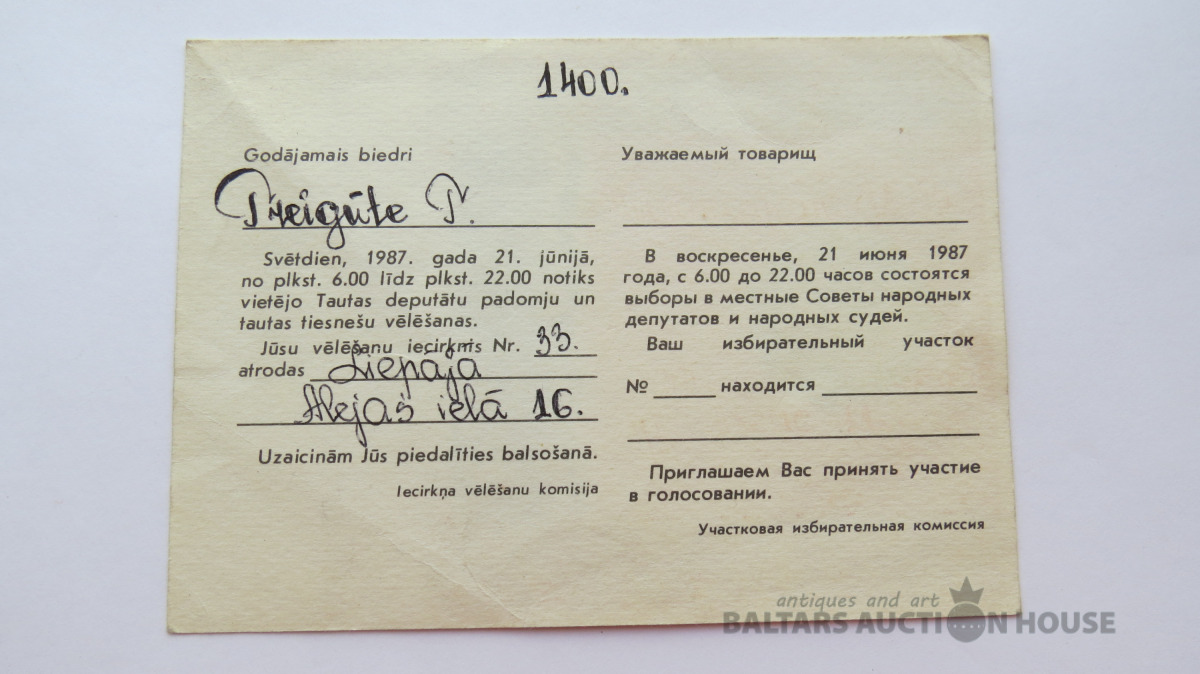 1400.
Godājamais biedri
Treigūte T.
Svētdien, 1987. gada 21. jūnijā,
no plkst. 6.00 līdz plkst. 22.00 notiks
vietējo Tautas deputātu padomju un
tautas tiesnešu vēlēšanas.
Jūsu vēlēšanu iecirknis Nr. 33.
atrodas Liepājā
Alejas ielā 16.
Uzaicinām Jūs piedalīties balsošanā.
Iecirkņa vēlēšanu komisija
Уважаемый товарищ
В воскресенье, 21 июня 1987
года, с 6.00 до 22.00 часов состоятся
выборы в местные Советы народных
депутатов и народных судей.
Ваш избирательный участок
№ находится
Приглашаем Вас принять участие
в голосовании.
Участковая избирательная комиссия
antiques and art
BALTARS AUCTION HOUSE